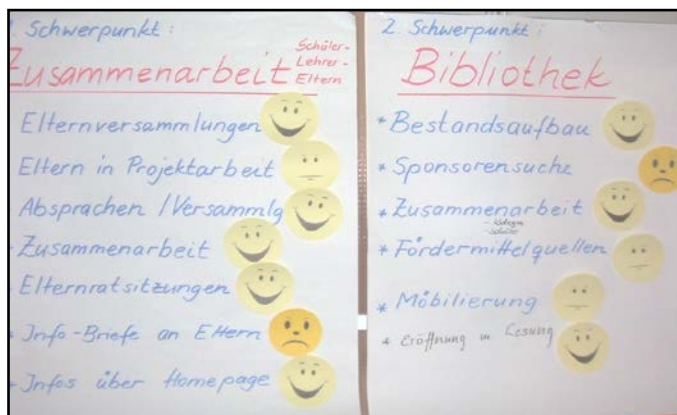 . Schwerpunkt:
Zusammenarbeit
Schüler-
Lehrer-
Eltern
Elternversammlungen
Eltern in Projektarbeit
Absprachen / Versammlg
- Zusammenarbeit
Elternratsitzungen
* Info-Briefe an Eltern
* Infos über Homepage
2. Schwerpunkt:
Bibliothek
* Bestandsaufbau
* Sponsorensuche
* Zusammenarbeit
* Fördermittelquellen
* Möbilierung
* Eröffnung m Lesung